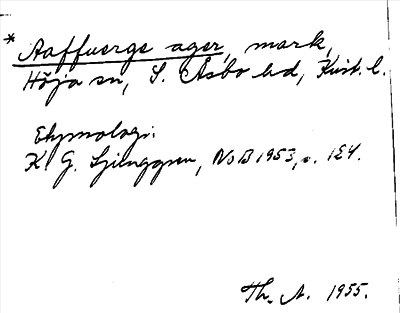 * Aaffuergs ager, mark,
Höja sn, S. Åsbo hd, Krist. l.
Etymologi:
K. G. Ljunggren, NoB 1953, s. 124.
Th. A. 1955.